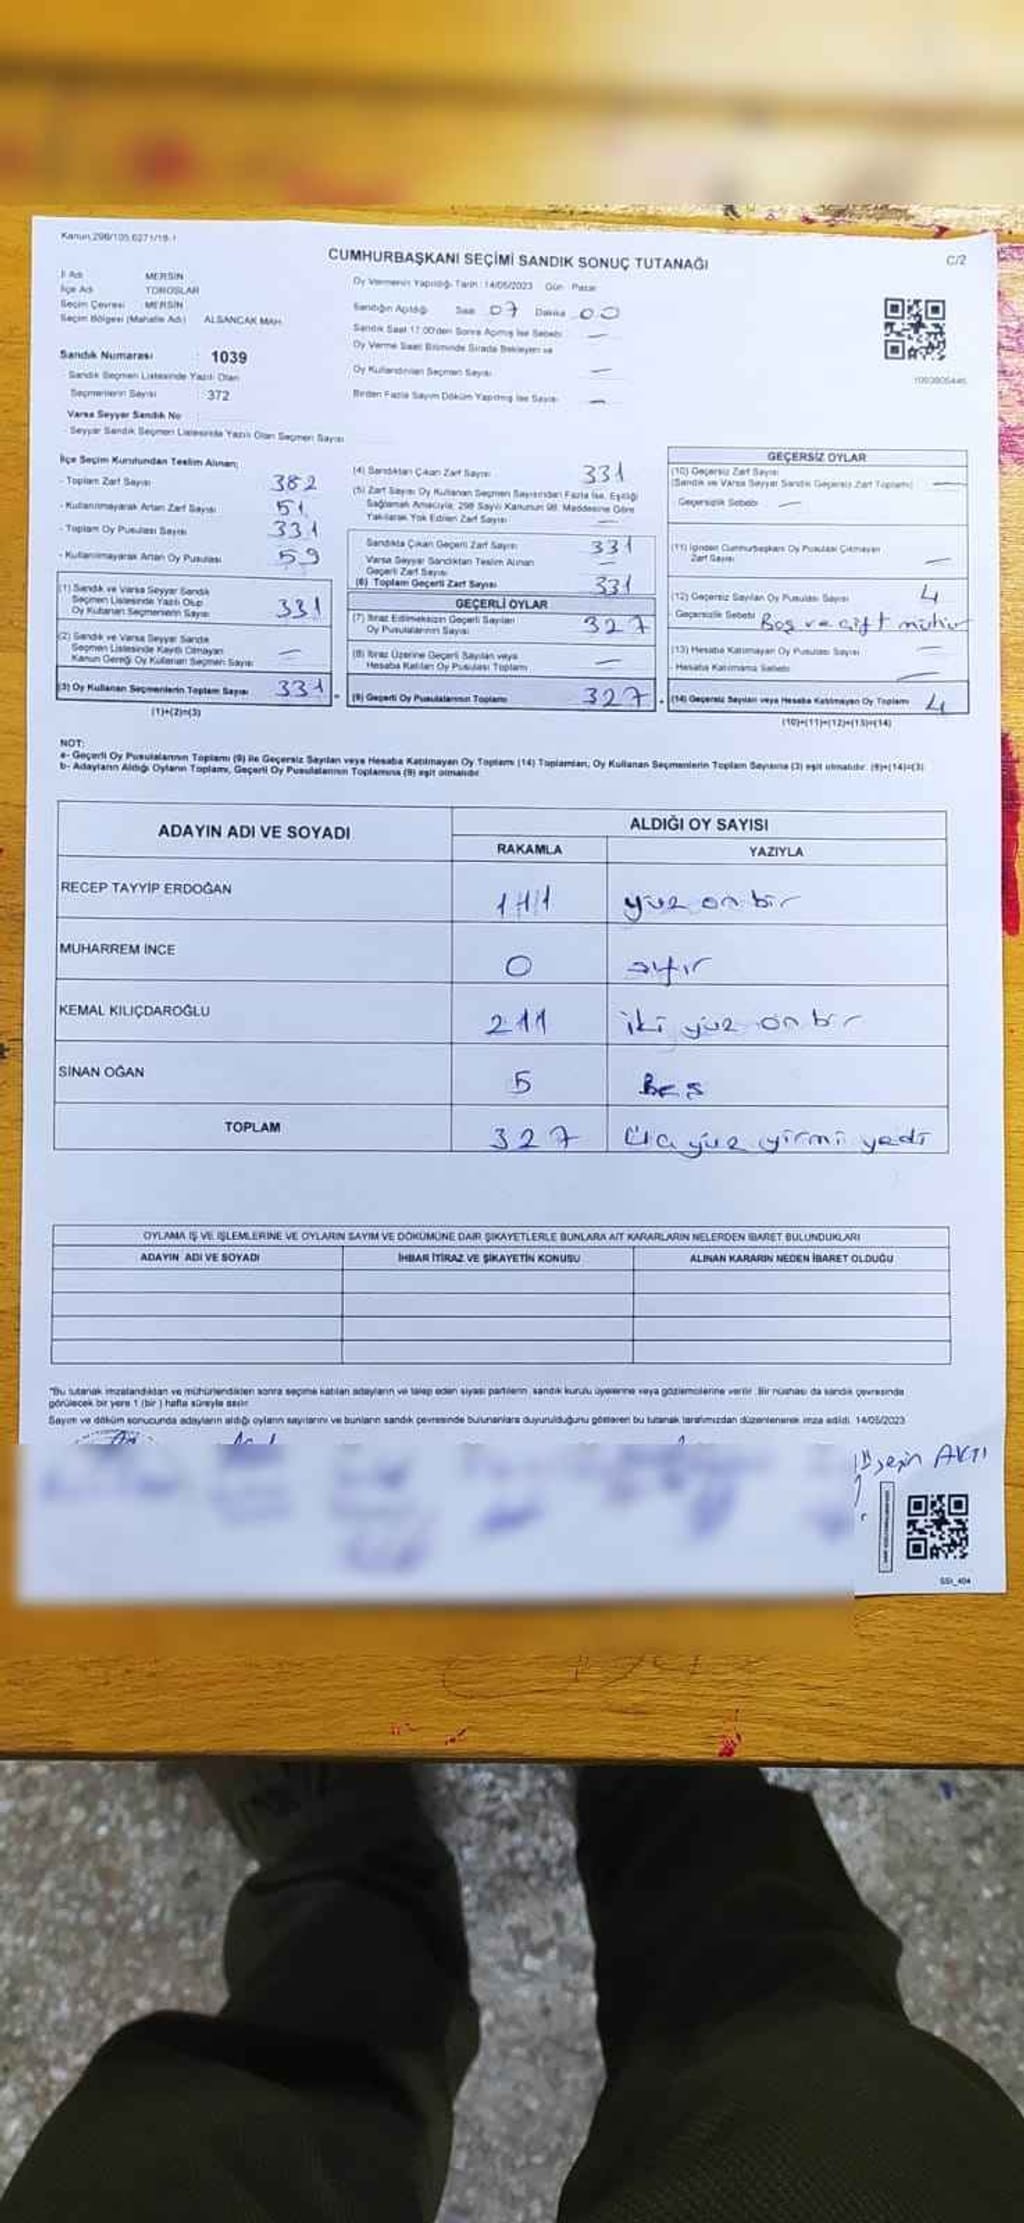 Kanun 298/105,6271/19-1
CUMHURBAŞKANI SEÇİMİ SANDIK SONUÇ TUTANAĞI
C/2
İl Adı MERSİN
İlçe Adı TOROSLAR
Seçim Çevresi MERSİN
Seçim Bölgesi (Mahalle Adı) ALSANCAK MAH.
Oy Vermenin Yapıldığı Tarih : 14/05/2023 Gün : Pazar
Sandığın Açıldığı Saat 07 Dakika 00
Sandık Saat 17:00'den Sonra Açılmış İse Sebebi —
Oy Verme Saati Bitiminde Sırada Bekleyen ve
Oy Kullandırılan Seçmen Sayısı —
Birden Fazla Sayım Döküm Yapılmış İse Sayısı —
Sandık Numarası : 1039
Sandık Seçmen Listesinde Yazılı Olan
Seçmenlerin Sayısı : 372
Varsa Seyyar Sandık No
Seyyar Sandık Seçmen Listesinde Yazılı Olan Seçmen Sayısı
İlçe Seçim Kurulundan Teslim Alınan;
- Toplam Zarf Sayısı 382
- Kullanılmayarak Artan Zarf Sayısı 51
- Toplam Oy Pusulası Sayısı 331
- Kullanılmayarak Artan Oy Pusulası 59
(1) Sandık ve Varsa Seyyar Sandık
Seçmen Listesinde Yazılı Olup
Oy Kullanan Seçmenlerin Sayısı 331
(2) Sandık ve Varsa Seyyar Sandık
Seçmen Listesinde Kayıtlı Olmayan
Kanun Gereği Oy Kullanan Seçmen Sayısı —
(3) Oy Kullanan Seçmenlerin Toplam Sayısı 331
(1)+(2)=(3)
(4) Sandıktan Çıkan Zarf Sayısı 331
(5) Zarf Sayısı Oy Kullanan Seçmen Sayısından Fazla İse, Eşitliği
Sağlamak Amacıyla; 298 Sayılı Kanunun 98. Maddesine Göre
Yakılarak Yok Edilen Zarf Sayısı —
Sandıkta Çıkan Geçerli Zarf Sayısı 331
Varsa Seyyar Sandıktan Teslim Alınan
Geçerli Zarf Sayısı —
(6) Toplam Geçerli Zarf Sayısı 331
GEÇERLİ OYLAR
(7) İtiraz Edilmeksizin Geçerli Sayılan
Oy Pusulalarının Sayısı 327
(8) İtiraz Üzerine Geçerli Sayılan veya
Hesaba Katılan Oy Pusulası Toplamı —
(9) Geçerli Oy Pusulalarının Toplamı 327
GEÇERSİZ OYLAR
(10) Geçersiz Zarf Sayısı
(Sandık ve Varsa Seyyar Sandık Geçersiz Zarf Toplamı) —
Geçersizlik Sebebi —
(11) İçinden Cumhurbaşkanı Oy Pusulası Çıkmayan
Zarf Sayısı —
(12) Geçersiz Sayılan Oy Pusulası Sayısı 4
- Geçersizlik Sebebi Boş ve çift mühür
(13) Hesaba Katılmayan Oy Pusulası Sayısı —
- Hesaba Katılmama Sebebi —
(14) Geçersiz Sayılan veya Hesaba Katılmayan Oy Toplamı 4
(10)+(11)+(12)+(13)=(14)
NOT:
a- Geçerli Oy Pusulalarının Toplamı (9) ile Geçersiz Sayılan veya Hesaba Katılmayan Oy Toplamı (14) Toplamları, Oy Kullanan Seçmenlerin Toplam Sayısına (3) eşit olmalıdır. (9)+(14)=(3)
b- Adayların Aldığı Oyların Toplamı, Geçerli Oy Pusulalarının Toplamına (9) eşit olmalıdır.
ADAYIN ADI VE SOYADI
ALDIĞI OY SAYISI
RAKAMLA YAZIYLA
RECEP TAYYİP ERDOĞAN 111 yüz on bir
MUHARREM İNCE 0 sıfır
KEMAL KILIÇDAROĞLU 211 iki yüz on bir
SİNAN OĞAN 5 Beş
TOPLAM 327 Üçyüz yirmi yedi
OYLAMA İŞ VE İŞLEMLERİNE VE OYLARIN SAYIM VE DÖKÜMÜNE DAİR ŞİKAYETLERLE BUNLARA AİT KARARLARIN NELERDEN İBARET BULUNDUKLARI
ADAYIN ADI VE SOYADI İHBAR İTİRAZ VE ŞİKAYETİN KONUSU ALINAN KARARIN NEDEN İBARET OLDUĞU
*Bu tutanak imzalandıktan ve mühürlendikten sonra seçime katılan adayların ve talep eden siyasi partilerin sandık kurulu üyelerine veya gözlemcilerine verilir. Bir nüshası da sandık çevresinde
görülecek bir yere 1 (bir) hafta süreyle asılır.
Sayım ve döküm sonucunda adayların aldığı oyların sayılarını ve bunların sandık çevresinde bulunanlara duyurulduğunu gösteren bu tutanak tarafımızdan düzenlenerek imza edildi. 14/05/2023
AKTI
SSI_404